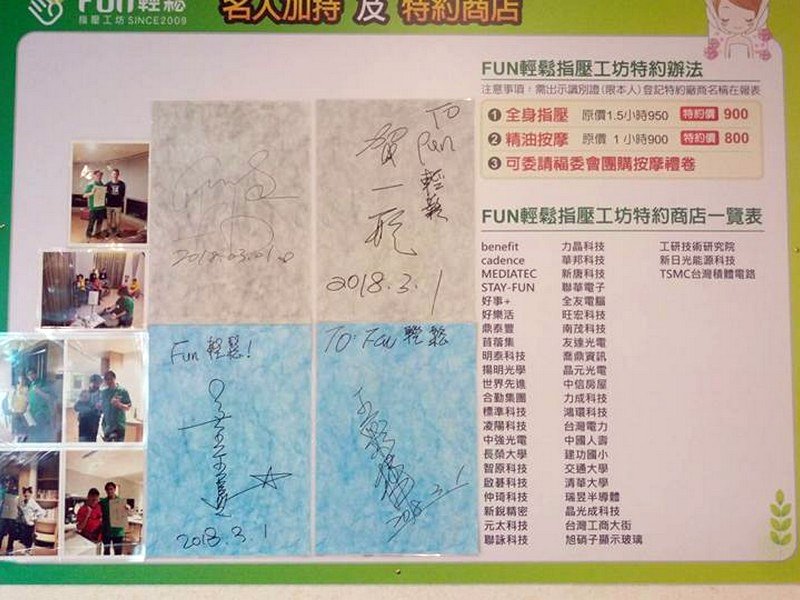 Fun輕鬆
指壓工坊 SINCE2009
名人加持 及 特約商店
2018.03.01
TO
Fun
輕鬆
賀一航
2018.3.1
Fun 輕鬆!
2018.3.1
TO: Fun 輕鬆
2018.3.1
FUN輕鬆指壓工坊特約辦法
注意事項：需出示識別證(限本人)登記特約廠商名稱在報表
1 全身指壓 原價1.5小時950 特約價 900
2 精油按摩 原價 1 小時900 特約價 800
3 可委請福委會團購按摩禮卷
FUN輕鬆指壓工坊特約商店一覽表
benefit
cadence
MEDIATEC
STAY-FUN
好事+
好樂活
鼎泰豐
首蓓集
明泰科技
揚明光學
世界先進
合勤集團
標準科技
凌陽科技
中強光電
長榮大學
智原科技
啟碁科技
仲琦科技
新銳精密
元太科技
聯詠科技
力晶科技
華邦科技
新唐科技
聯華電子
全友電腦
旺宏科技
南茂科技
友達光電
喬鼎資訊
晶元光電
中信房屋
力成科技
鴻環科技
台灣電力
中國人壽
建功國小
交通大學
清華大學
瑞昱半導體
晶光成科技
台灣工商大街
旭硝子顯示玻璃
工研技術研究院
新日光能源科技
TSMC台灣積體電路